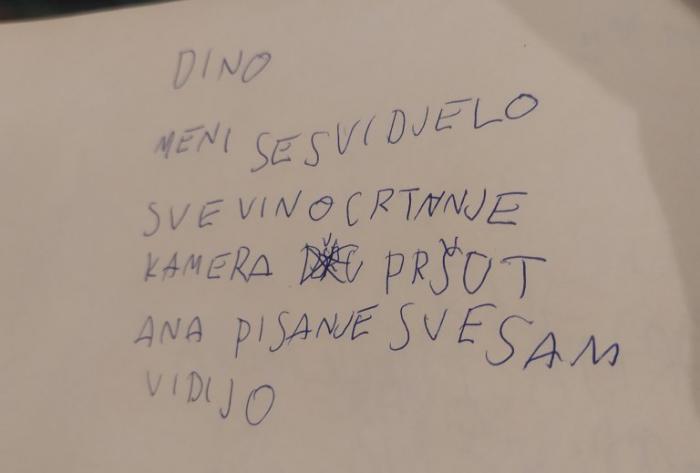 DINO
MENI SESVIDJELO
SVEVINOCRTANJE
KAMERA PRŠUT
ANA PISANJE SVESAM
VIDIJO